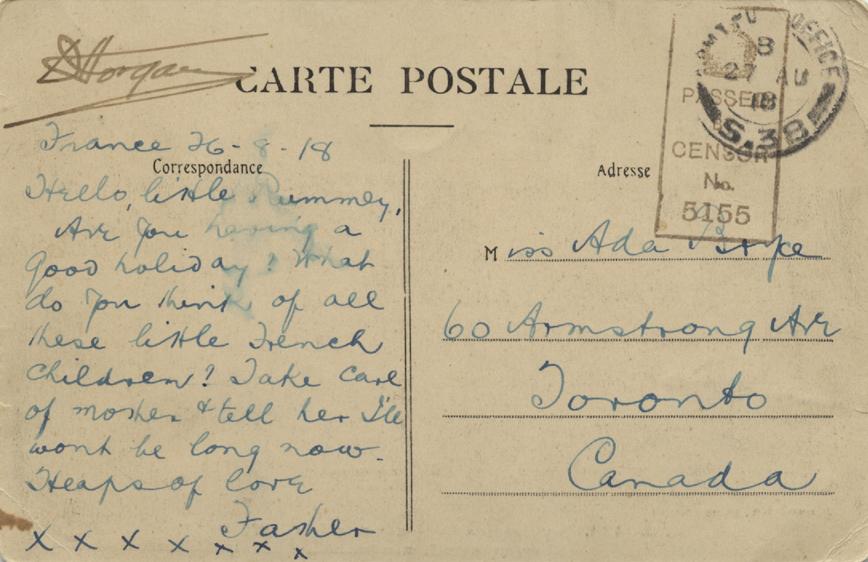 CARTE POSTALE
ARMY POST OFFICE
B
27 AU
18
S.38
PASSED
CENSOR
No.
5155
France 26-8-18
Correspondance
Hello, little Rummey,
Are you having a
good holiday? What
do you think of all
these little French
children? Take care
of mother & tell her I'll
wont be long now.
Heaps of love
Father
x x x x x x x
Adresse
Miss Ada
60 Armstrong Ave
Toronto
Canada